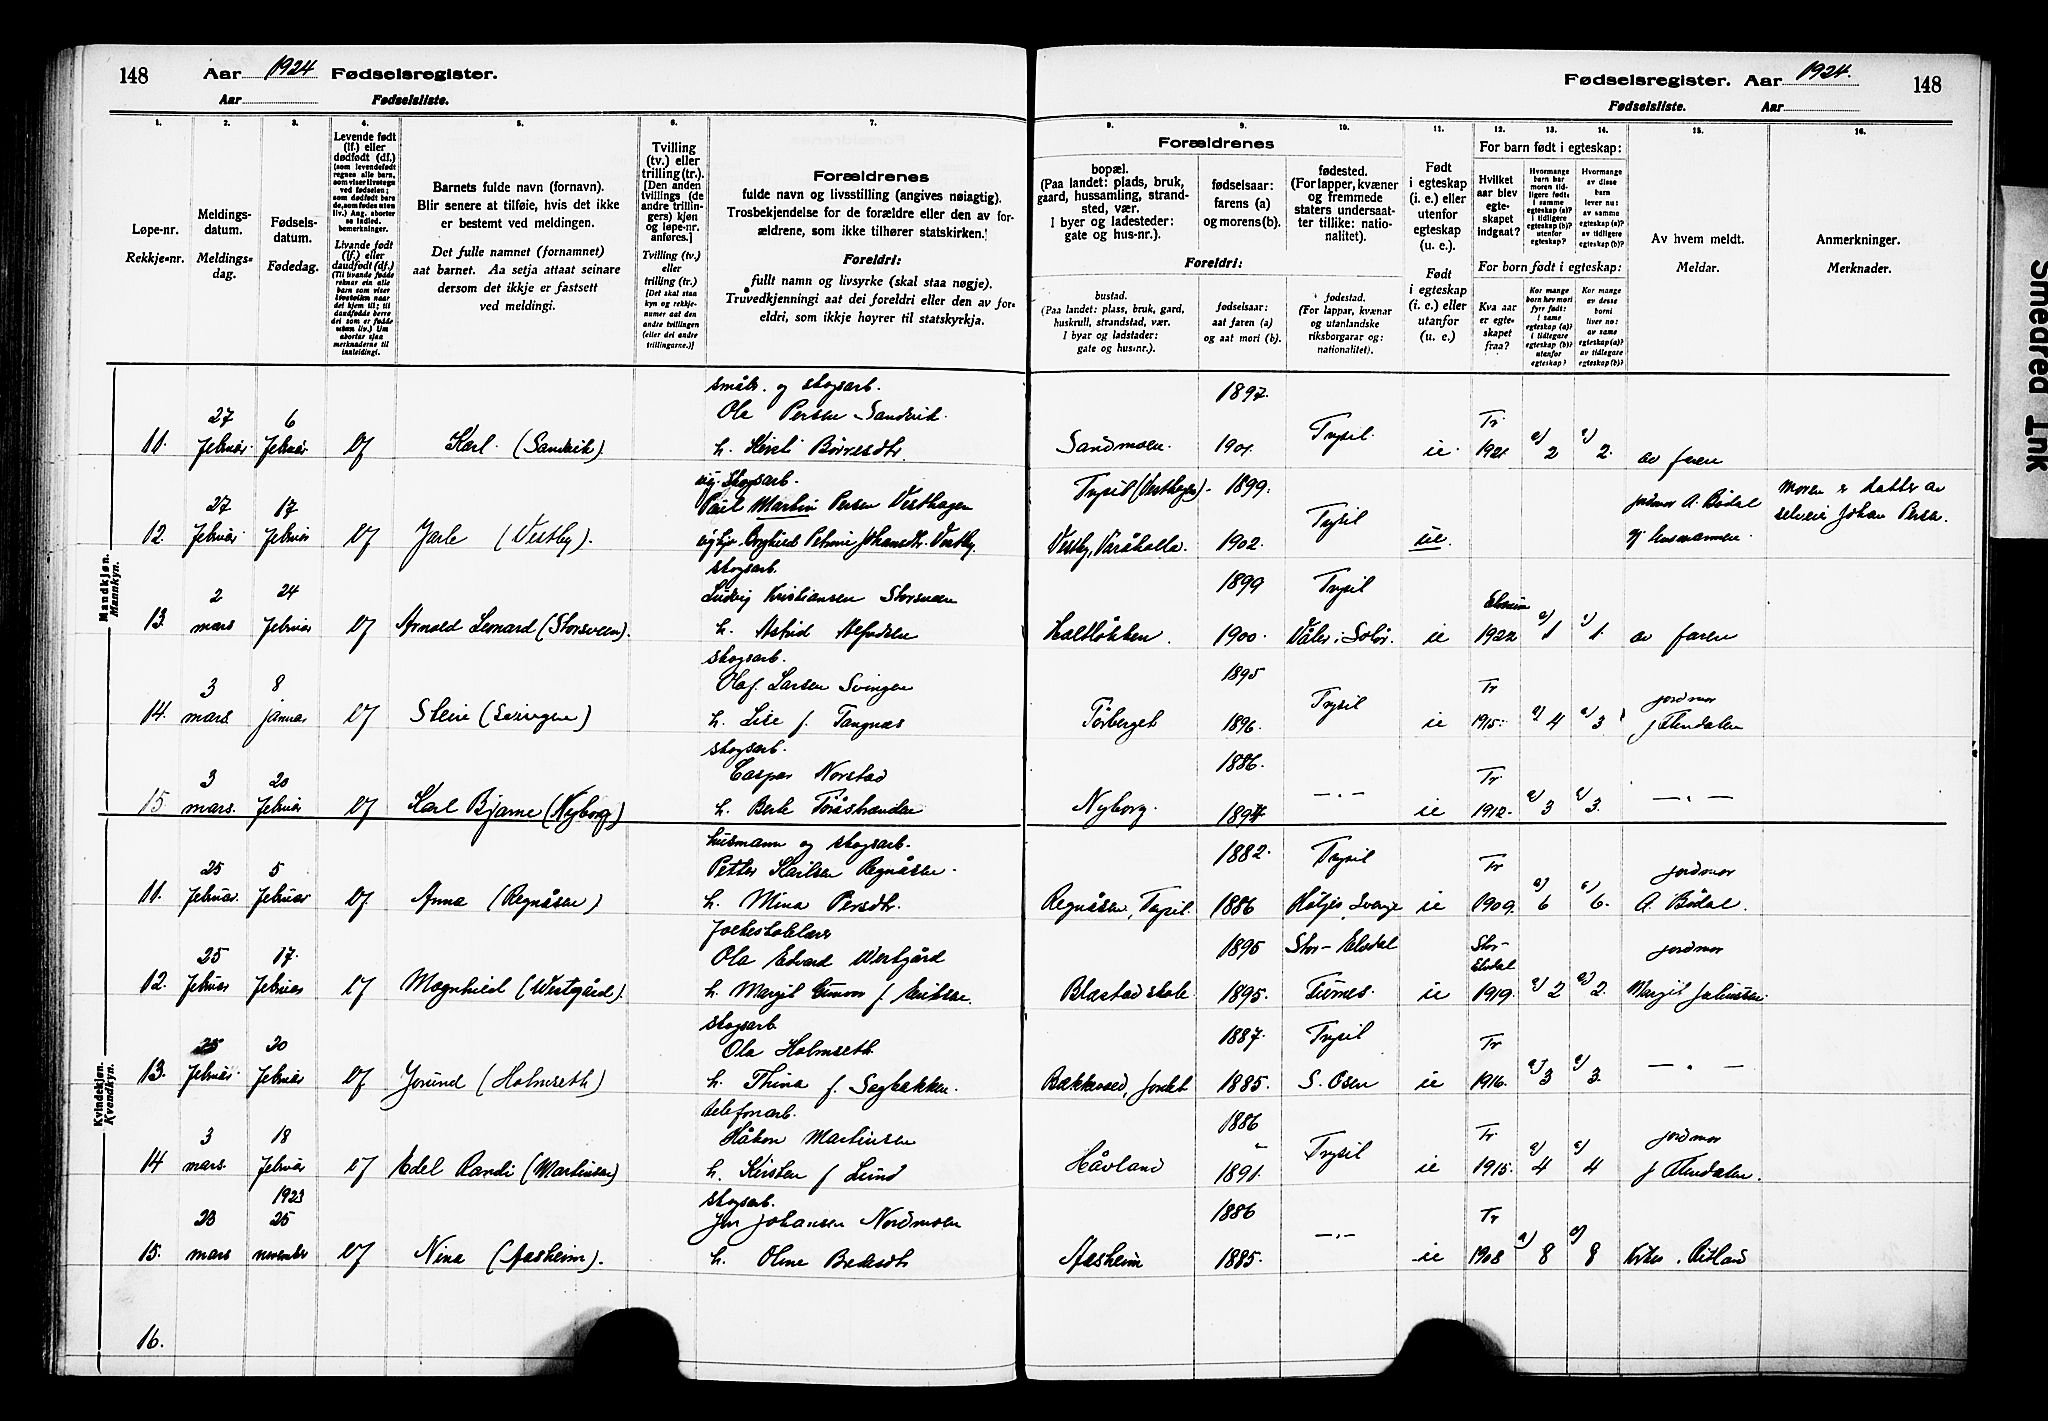 148 Aar 1924 Fødselsregister.
Aar Fødselsliste.
Fødselsregister. Aar 1924. 148
Fødselsliste. Aar
1. 2. 3. 4. 5. 6. 7.
Løpe-nr.
Rekkje-nr.
Meldings-
datum.
Meldings-
dag.
Fødsels-
datum.
Fødedag.
Levende født
(lf.) eller
dødfødt (df.)
(som levendefødt
regnes alle barn,
som viser livstegn
ved fødselen;
som dødfødt barn
de, som fødes uten
liv.) Ang. aborter
se Indled.
bemerkninger.
Livande født
(lf.) eller
daudfødt (df.)
Barnets fulde navn (fornavn).
Blir senere at tilføie, hvis det ikke
er bestemt ved meldingen.
Det fulle namnet (fornamnet)
aat barnet. Aa setja attaat seinare
dersom det ikkje er fastsett
ved meldingi.
Tvilling
(tv.) eller
trilling (tr.).
[Den anden
tvillings (de
andre trillin-
gers) kjøn
og løpe-nr.
anføres.]
Tvilling (tv.)
eller
trilling (tr.)
[Det skal staa
kyn og rekkje-
numer aat den
andre tvillingen
(eller dei andre
trillingarne.)]
Forældrenes
fulde navn og livsstilling (angives nøiagtig).
Trosbekjendelse for de forældre eller den av for-
ældrene, som ikke tilhører statskirken.
Foreldri:
fullt namn og livsyrke (skal staa nøgje).
Truvedkjenningi aat dei foreldri eller den av for-
eldri, som ikkje høyrer til statskyrkja.
8. 9. 10. 11. 12. 13. 14. 15. 16.
Forældrenes
bopæl.
(Paa landet: plads, bruk,
gaard, hussamling, strand-
sted, vær.
I byer og ladesteder:
gate og hus-nr.).
fødselsaar:
farens (a)
og morens (b).
fødested.
(For lapper, kvæner
og fremmede
staters undersaat-
ter tillike: natio-
nalitet).
Foreldri:
bustad.
(Paa landet: plass, bruk, gard,
huskrull, strandstad, vær.
I byar og ladstader:
gate og hus-nr.).
fødselsaar:
aat faren (a)
og aat mori (b).
fødestad.
(For lappar, kvænar
og utanlandske
riksborgarar og:
nationalitet).
Født
i egteskap
(i. e.) eller
utenfor
egteskap
(u. e.).
Født
i egteskap
(i. e.) eller
utanfor
(u. e.).
For barn født i egteskap:
Hvilket
aar blev
egte-
skapet
indgaat?
Hvormange
barn har
moren tid-
ligere født:
i samme
egteskap (a)?
i tidligere
egteskap (b)?
utenfor
egteskap?
Hvormange
av disse
barn
lever nu:
av samme
egteskap (a)?
av tidligere
egteskap (b)?
For born født i egteskap:
Kva aar
er egte-
skapet
fraa?
Av hvem meldt.
Meldar.
Anmerkninger.
Merknader.
Mandkjøn.
Mannkyn.
småbr. og skogsarb. 1897.
27 6 Ola Persen Sandvik Tr
11. februar februar lf Karl (Sandvik). h. Kirsti Børresdtr Sandmoen. 1901. Trysil. ie. 1921 a) 2 a) 2. av faren
ug. skogsarb.
27 17 Paul Martin Persen Vesthagen Trysil (Vesthagen). 1899. jordmor A. Bødal Moren er datter av
12. februar februar lf Jarle (Vestby). Petrine Johansdtr. Vestby Vestby, 1902. Trysil ue. selveier Johan Persen
skogsarb. 1899 Trysil
2 24 Ludvig Kristiansen Storsveen Elverum
13. mars februar lf Arnold Leonard (Storsveen). h. Astrid 1900. Våler i Solør. ie 1922 a) 1 a) 1. av faren
skogsarb. 1895
3 8 Olaf Larsen Svingen Tr jordmor
14. mars januar lf Stein (Svingen) h. Lise f. Tangnæs Tørberget 1896. Trysil ie 1915. a) 4 a) 3
skogsarb. 1886.
3 20 Caspar Norstad Tr
15 mars. februar lf Karl Bjarne (Nyborg) h. Berte Nyborg. —„— ie 1912. a) 3 a) 3. —„—
Kvindekjøn.
Kvendkyn.
husmann og skogsarb. 1882. Trysil
25 5 Petter Karlsen Regnåsen. Tr jordmor
11. februar. februar lf Anna (Regnåsen) h. Mina Persdtr. Regnåsen, Trysil. 1886 Höljes, Sverige ie 1909. a) 6 a) 6. A. Bødal.
folkeskolelærer 1895 Stor-Elvdal
25 17. Ola Edvard Westgård Stor-Elvdal jordmor
12. februar februar lf Magnhild (Westgård). h. Margit f. Eriksen. Blæstad skole. 1895. Furnes. ie 1919. a) 2 a) 2. Margit Juliussen
skogsarb 1887. Trysil
25 20 Ola Holmseth Tr
13. februar. februar lf Jorund (Holmseth) h. Thina f. Sagbakken. 1885. S. Osen ie 1916. a) 3 a) 3. —„—
telefonarb. 1886
3 18 Håkon Martinsen Tr jordmor
14 mars. februar lf Edel Randi (Martinsen) h. Kirsten f Lund Håvland 1891. Trysil ie 1915. a) 4 a) 4
1923 skogsarb. 1886
23 25 Jon Johansen Nordmoen Tr
15. mars november lf Nina (Aasheim). h. Oline Aasheim 1885. —„— ie 1908 a) 8 a) 8
16.
Smedred Ink